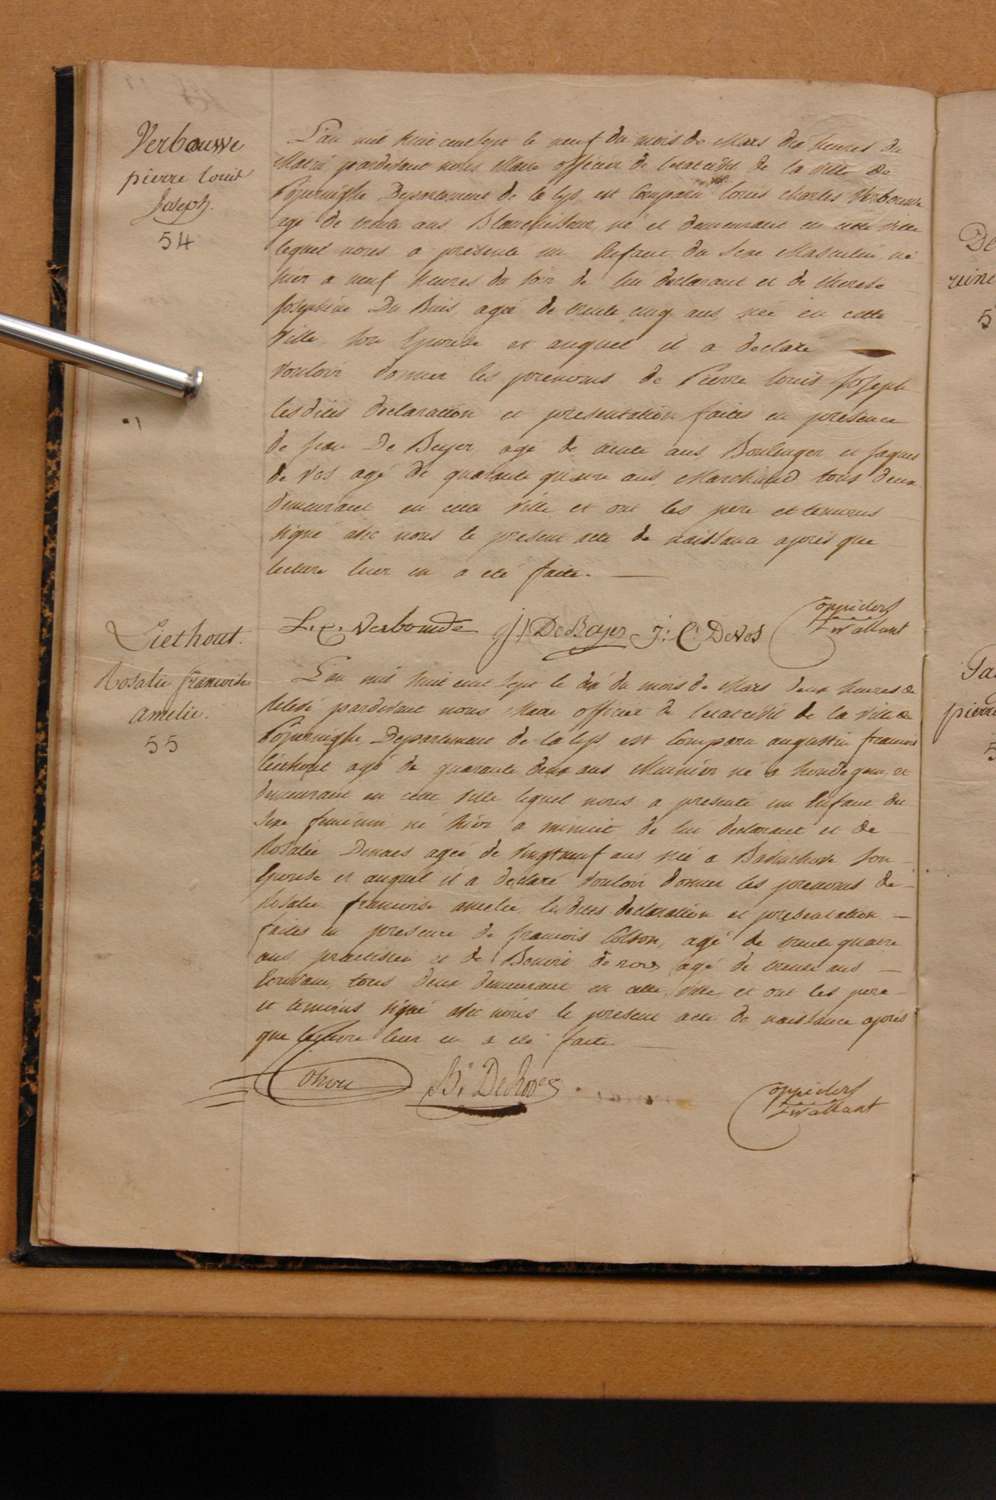 Verbouwe
pierre louis
Joseph.
54
L'an mil huit cent sept le neuf du mois de Mars dix heures du
Matin pardevant nous Maire officier de l'etat civil de la ville de
Poperinghe Departement de la Lys est Comparu louis charles Verbouwe
agé de trente ans Blanchisseur, né et demeurant en cette ville
lequel nous a présenté un Enfant du Sexe Masculin né
hier a neuf heures du soir de lui declarant et de therese
Josephine Du Buis agée de trente cinq ans née en cette
Ville son Epouse et auquel il a declaré
vouloir donner les prenoms de Pierre louis Joseph
lesdites declaration et presentation faites en presence
de jean De Beyer agé de trente ans Boulanger et jaques
de Vos agé de quarante quatre ans Marchand tous deux
demeurant en cette ville et ont les pere et temoins
signé avec nous le present acte de naissance après que
lecture leur en a eté faite.
L. C. Verbouwe J J DeBeyer J: C: DeVos
Liethout.
Rosalie francoise
Amelie.
55
L'an mil huit cent sept le dix du mois de Mars deux heures de
relevée pardevant nous Maire officier de l'etat civil de la ville de
Poperinghe Departement de la Lys est Comparu augustin francois
Liethout agé de quarante deux ans Meunier né a hondeghem et
demeurant en cette ville lequel nous a presenté un Enfant du
Sexe feminin né hier a minuit de lui declarant et de
Rosalie Denaes agée de vingt neuf ans née a
Epouse et auquel il a declaré vouloir donner les prenoms de
Rosalie francoise amelie lesdites declaration et presentation
faites en presence de francois Colson, agé de trente quatre
ans, practicien et de Benoit de roo agé de trente ans
Ecrivain, tous deux demeurant en cette ville, et ont les pere
et temoins signé avec nous le present acte de naissance après
que lecture leur en a eté faite